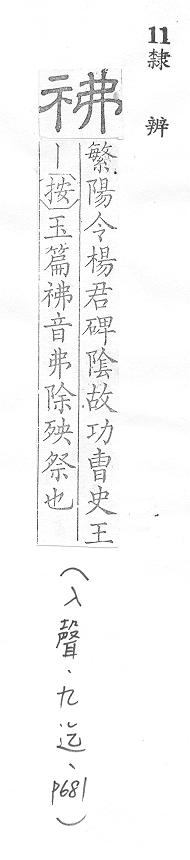 11隸辨
祓
繁陽令楊君碑陰故功曹史王
丨按玉篇祓音弗除殃祭也
(入聲、九迄、p681)